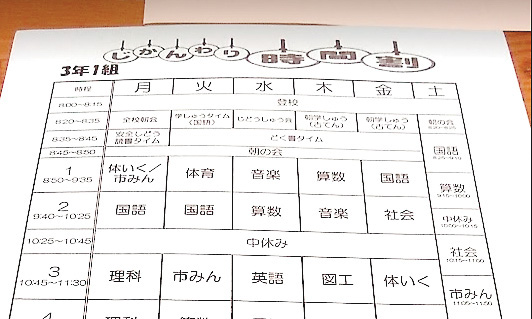 じかんわり時間割
3年1組
時程 月 火 水 木 金 土
8:00～8:15 登校
8:20～8:35 全校朝会 学しゅうタイム(国語) じどうしゅう会 朝学しゅう(古てん) 朝学しゅう(古てん) 朝の会
8:35～8:45 安全しどう 読書タイム どく書タイム
8:45～8:50 朝の会
国語
1 8:50～9:35 体いく/市みん 体育 音楽 算数 国語
算数
2 9:40～10:25 国語 国語 算数 音楽 社会
中休み
10:25～10:45 中休み
社会
3 10:45～11:30 理科 市みん 英語 図工 体いく
市みん